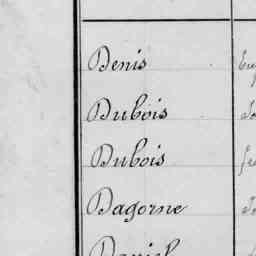 Denis
Dubois
Dubois
Dagorne
Daniel